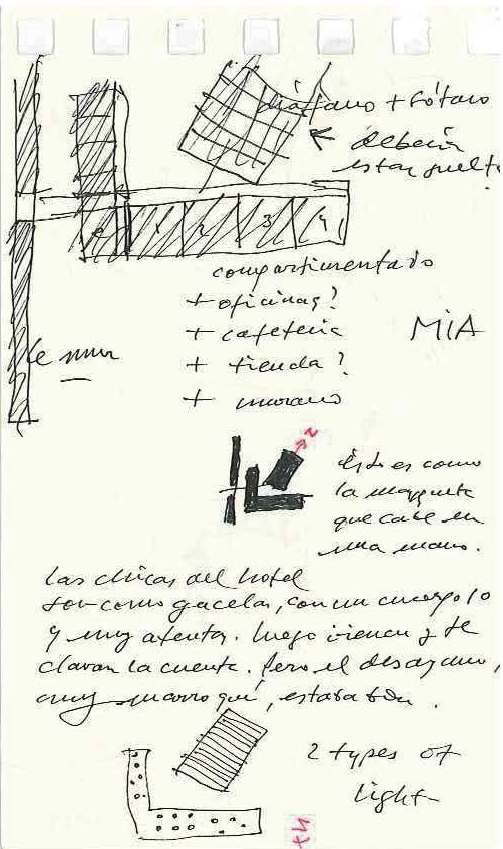 diáfano + sótano
debería
estar suelto
e 1 2 3 4
compartimentado
+ oficinas?
+ cafetería
+ tienda?
+ 
MiA
le mur
N
Ésto es como
la maqueta
que cabe en
una mano.
Las chicas del hotel
son como gacelas, con un cuerpo 10
y muy atentas. Luego vienen y te
clavan la cuenta. Pero el desayuno,
muy marroquí, estaba bén.
2 types of
light